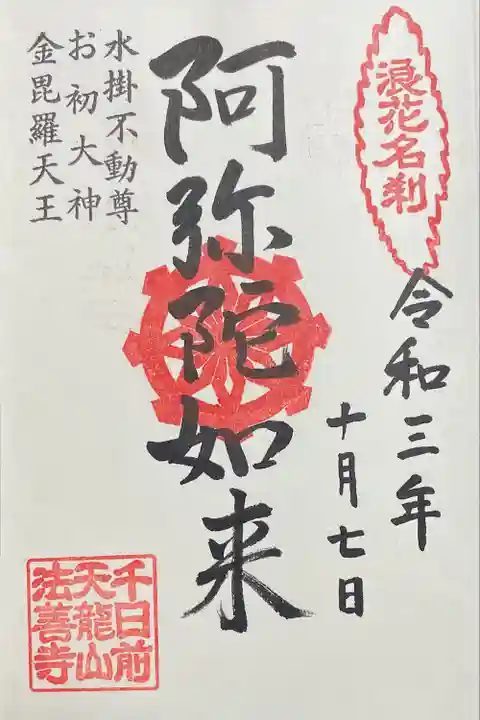 浪花名刹
令和三年
十月七日
阿弥陀如来
水掛不動尊
お初大神
金毘羅天王
千日前
天龍山
法善寺